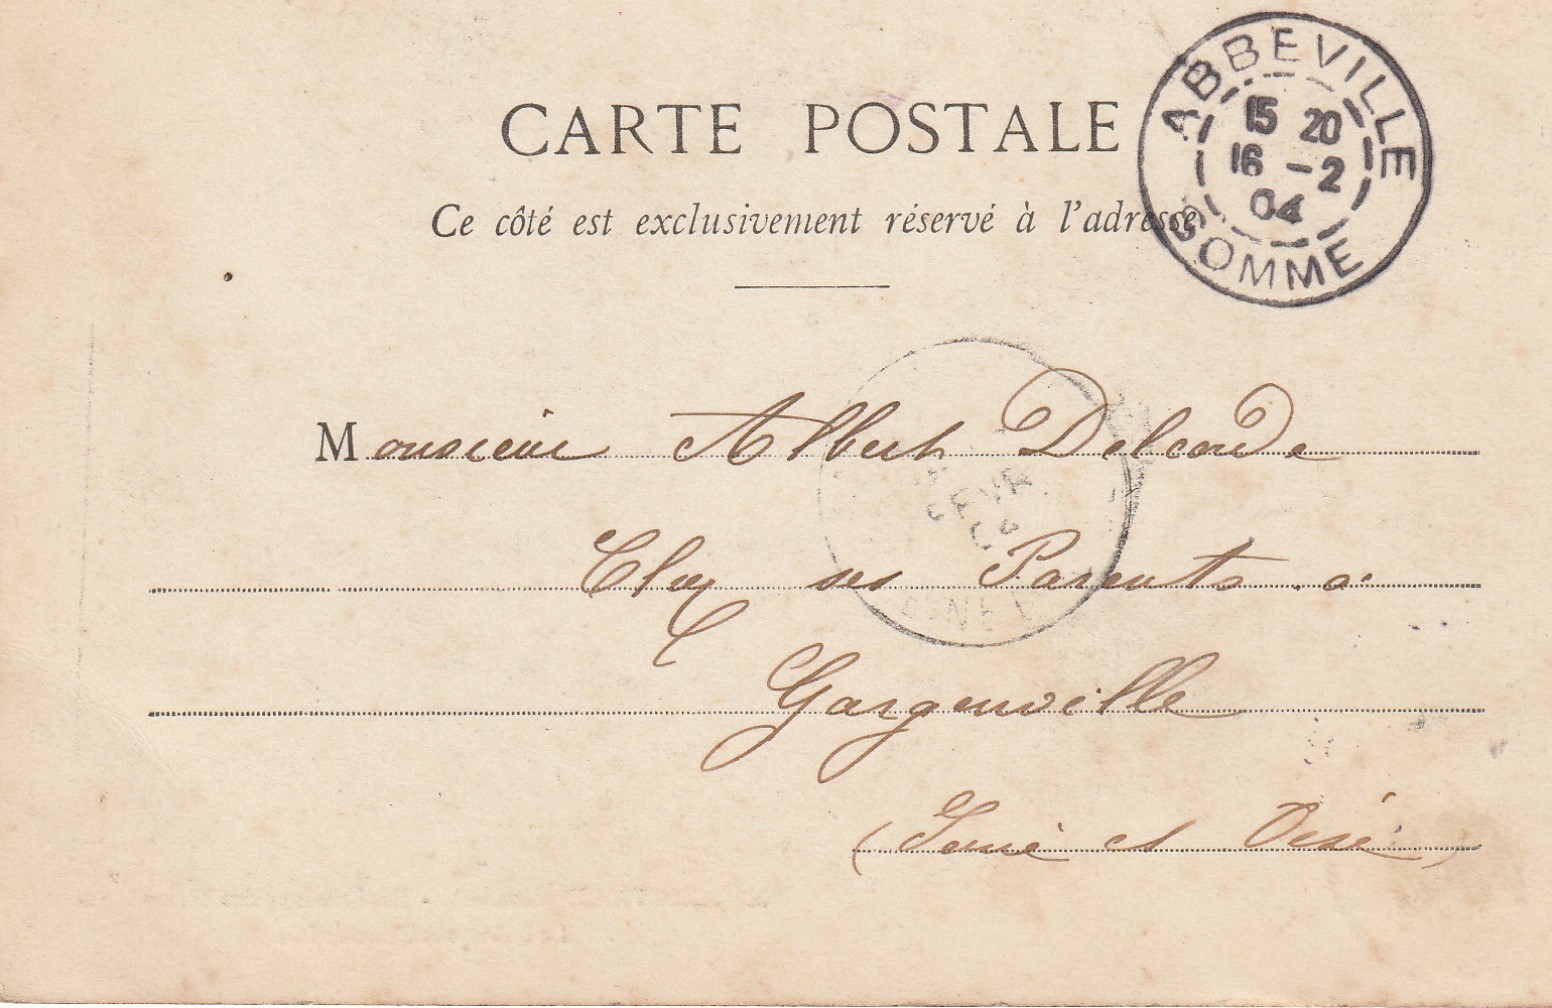 CARTE POSTALE
Ce côté est exclusivement réservé à l'adresse
ABBEVILLE
15 20
16 -2
04
SOMME
Monsieur Albert Delcorde
Chez ses Parents a
FEVR
04
Gargenville
(Seine et Oise)